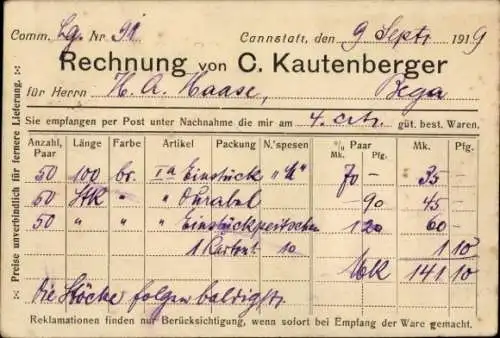 Comm. Lg. Nr 91 Cannstatt, den 9 Septr. 1919
Rechnung von C. Kautenberger
für Herrn H. A. Haase, Bega
Sie empfangen per Post unter Nachnahme die mir am 4. crt. güt. best. Waren.
Anzahl, Paar Länge Farbe Artikel Packung N.'spesen % Paar Mk. Pfg. Mk. Pfg.
50 100 br. Ia Einstück 70 - 35 -
50 " 90 45 -
50 " " " Einstückpeitschen 120 60 -
1 Karton 10 1 10
Mk 141 10
Die Stöcke folgen baldigst.
Reklamationen finden nur Berücksichtigung, wenn sofort bei Empfang der Ware gemacht.
Preise unverbindlich für fernere Lieferung.